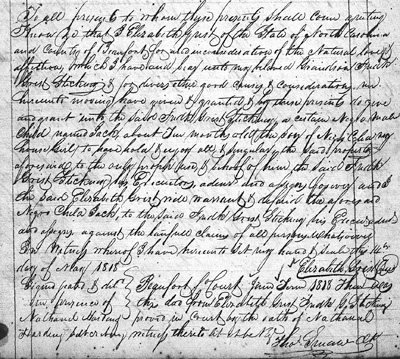 To all persons to whom these presents shall come greeting
Know ye that I Elizabeth Grist of the State of North Carolina
and County of Beaufort for and in consideration of the Natural love &
affection which I have and bear unto my beloved Grandson Fredk
Grist Sticking & for divers other good causes & considerations me
hereunto moving have given & granted & by these presents do give
and grant unto the said Fredk Grist Sticking a certain Negro male
Child named Jack, about Ten months old the boy of Negro
house Girl to have hold & enjoy all & singular the said property
aforesaid to the only proper use & behoof of him the said Fredk
Grist Sticking his Executors, adms and assigns forever and I
the said Elizabeth Grist will warrant & defend the aforesaid
Negro Child Jack, to the said Fredk Grist Sticking his Executors
and assigns against the lawful claims of all persons whatsoever
In Witness whereof I have hereunto set my hand & seal the 14th
day of May 1818 Elizabeth Grist
Signed sealed & deld Beaufort Ss Court June Term 1818 Then
in presence of this deed from Elizabeth Grist to Fredk G Sticking
Nathaniel Harding proved in Court by the oath of Nathaniel
Harding witness thereto let it be Rd
Thos Smaw Clk